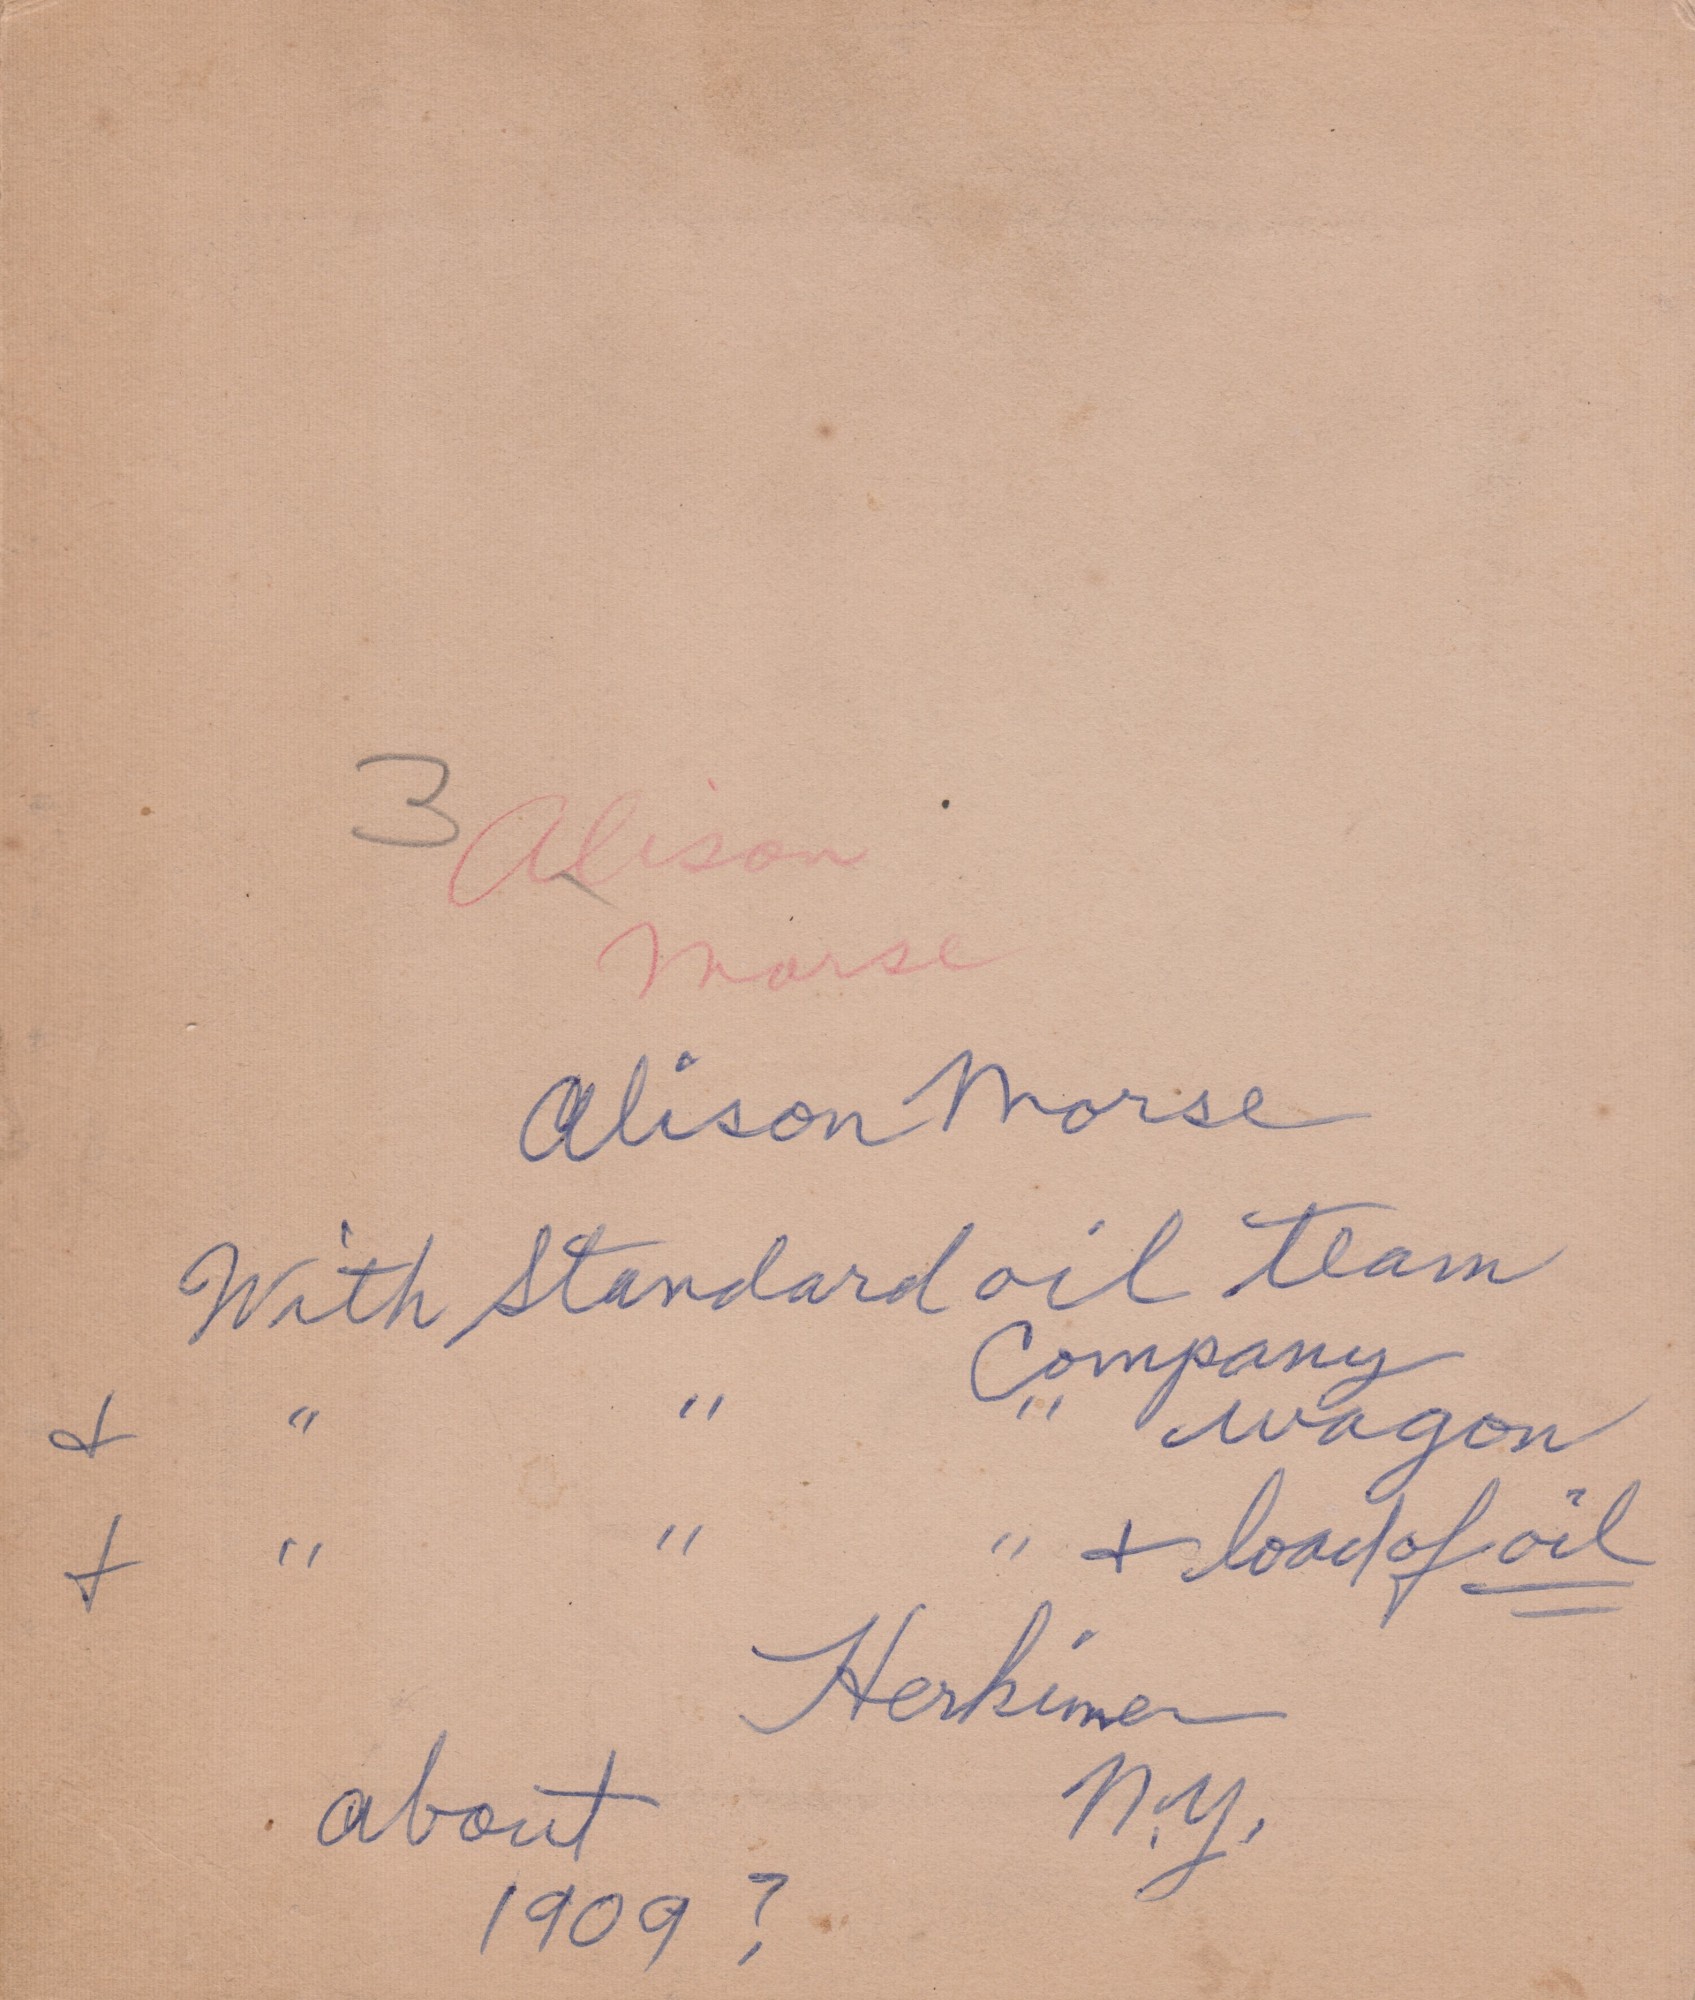 3 Alison
Morse
Alison Morse
With Standard oil team
Company
+ " " " wagon
+ " " " + load of oil
Herkimer
N.Y.
about
1909 ?